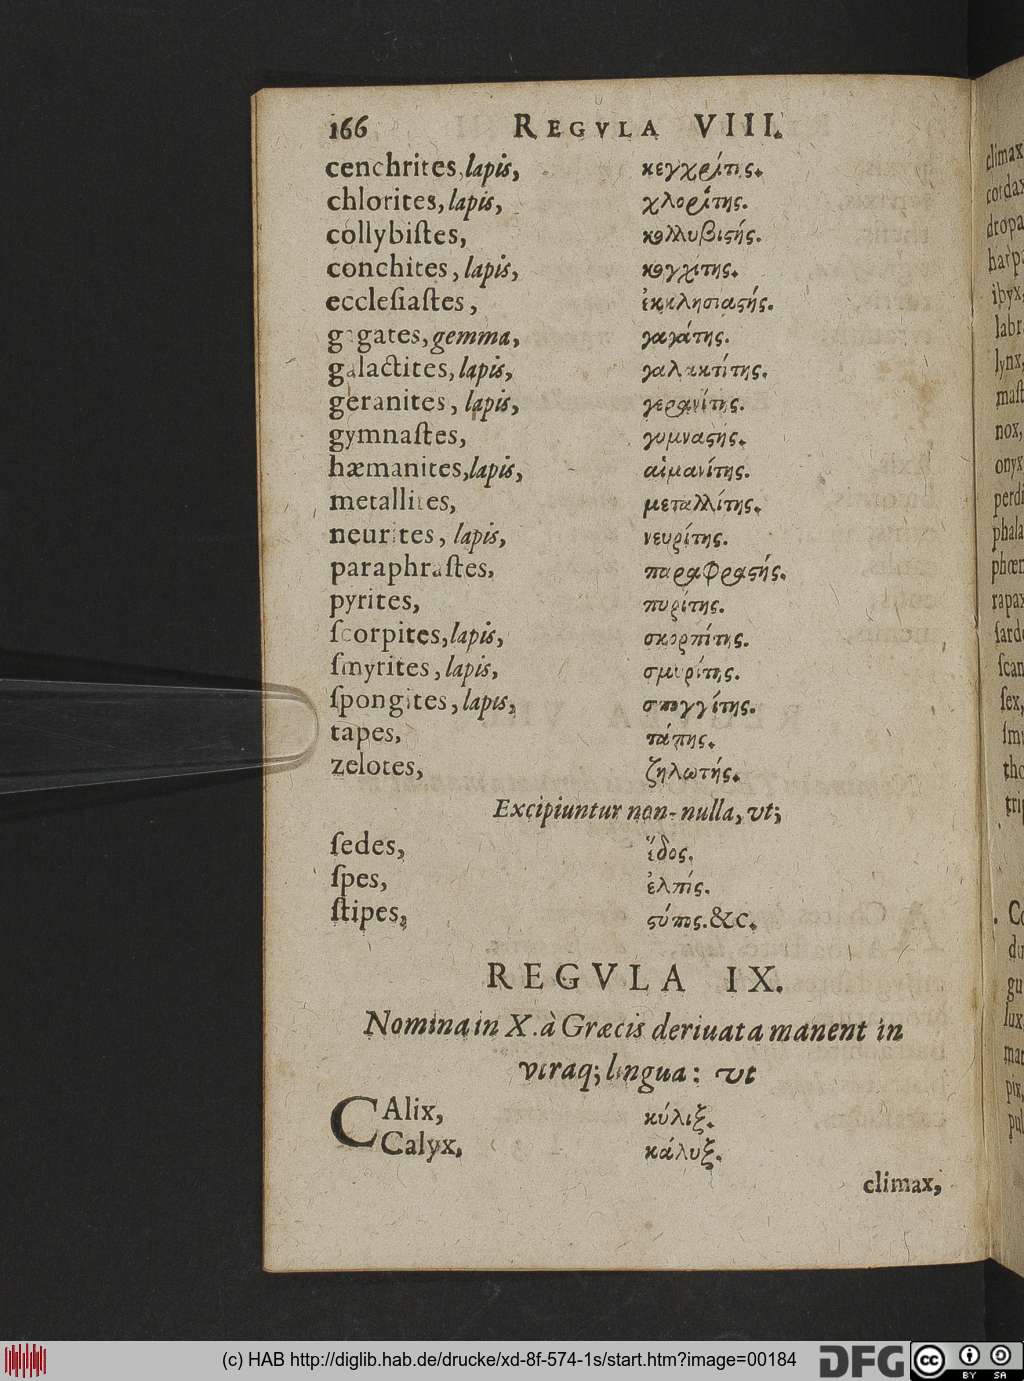 166 REGVLA VIII.
cenchrites, lapis, κεγχρίτης.
chlorites, lapis, χλορίτης.
collybiſtes, κολλυβιϛής.
conchites, lapis, κογχίτης.
eccleſiaſtes, ἐκκλησιαϛής.
gagates, gemma, γαγάτης.
galactites, lapis, γαλακτίτης.
geranites, lapis, γερανίτης.
gymnaſtes, γυμναϛής.
hæmanites, lapis, αἱμανίτης.
metallites, μεταλλίτης.
neurites, lapis, νευρίτης.
paraphraſtes, παραφραϛής.
pyrites, πυρίτης.
ſcorpites, lapis, σκορπίτης.
ſmyrites, lapis, σμυρίτης.
ſpongites, lapis, σπογγίτης.
tapes, τάπης.
zelotes, ζηλωτής.
Excipiuntur non-nulla, vt;
ſedes, ἵδος.
ſpes, ἐλπίς.
ſtipes, ϛύπος. &c.
REGVLA IX.
Nomina in X. à Græcis deriuata manent in
vtraq; lingua: vt
CAlix, κύλιξ.
Calyx, κάλυξ.
climax,
climax
cordax
dropa
harpa
ibyx,
labr
lynx,
maſt
nox,
onyx
perdi
phala
phœn
rapax
ſard
ſcan
ſex,
ſm
tho
tri
Co
du
gu
lux
mar
pix,
pul
(c) HAB http://diglib.hab.de/drucke/xd-8f-574-1s/start.htm?image=00184
DFG
cc BY SA